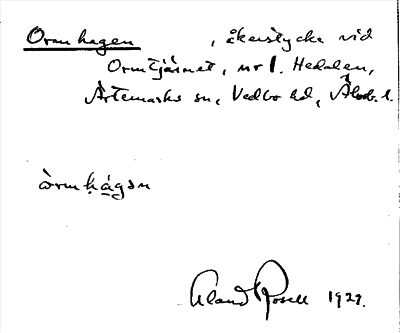 Ormhagen , åkerstycke vid
Ormtjärnet, nr 1. Hedalen,
Ärtemarks sn, Vedbo hd, Älvsb. l.
òrmḥa̲gən
Erland Rosell 1929.